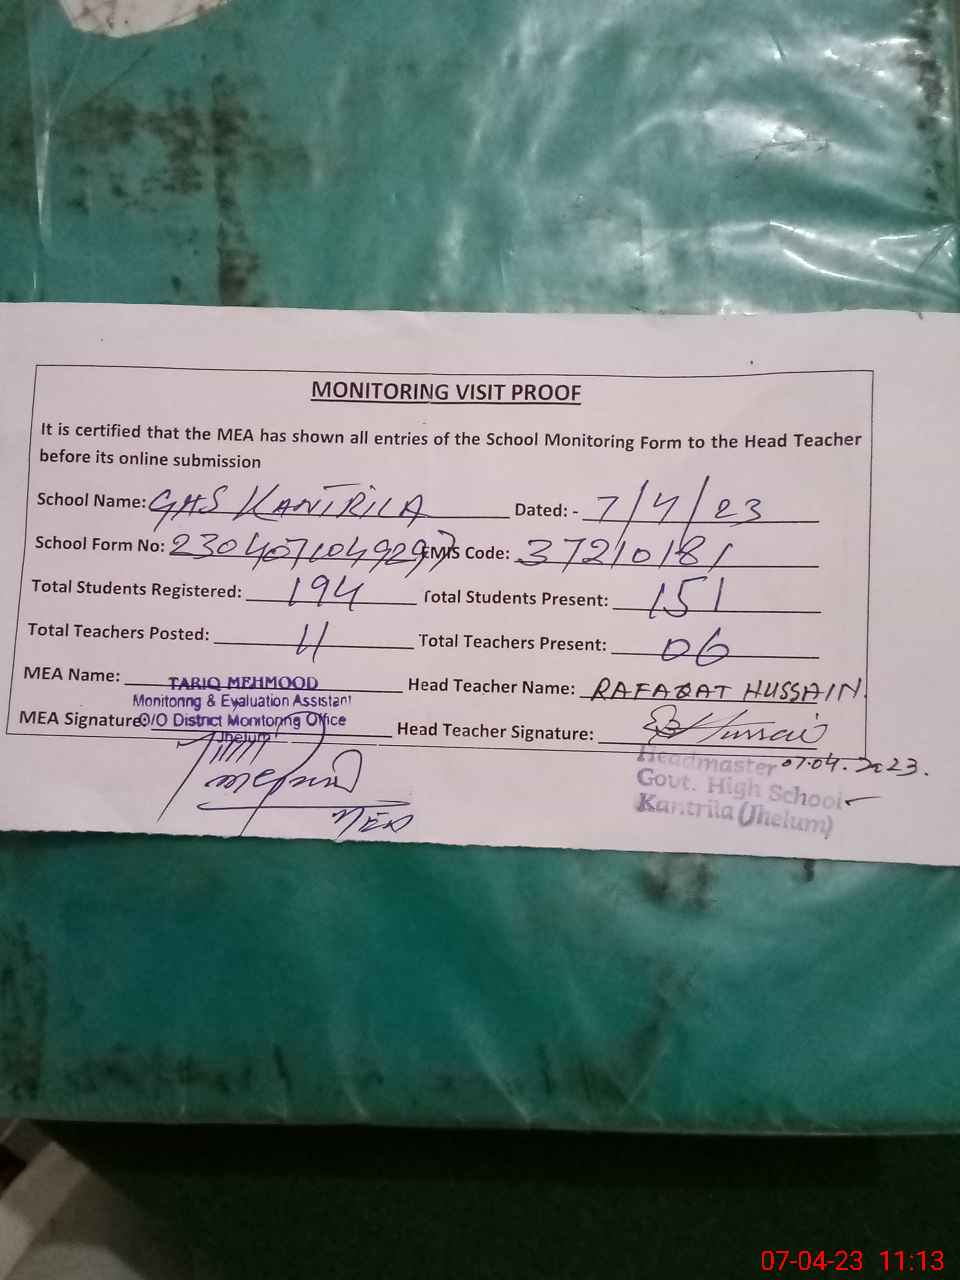 MONITORING VISIT PROOF
It is certified that the MEA has shown all entries of the School Monitoring Form to the Head Teacher
before its online submission
School Name: GHS KANTRILA Dated: - 7/4/23
School Form No: EMIS Code: 37210181
Total Students Registered: 194 Total Students Present: 151
Total Teachers Posted: 11 Total Teachers Present: 06
MEA Name: TARIQ MEHMOOD Head Teacher Name: RAFAQAT HUSSAIN
Monitoring & Evaluation Assistant
MEA Signature O/O District Monitoring Office Head Teacher Signature: Hussain
Jhelum
Headmaster 07.04.2023.
Govt. High School
Kantrila (Jhelum)
MEA
07-04-23 11:13